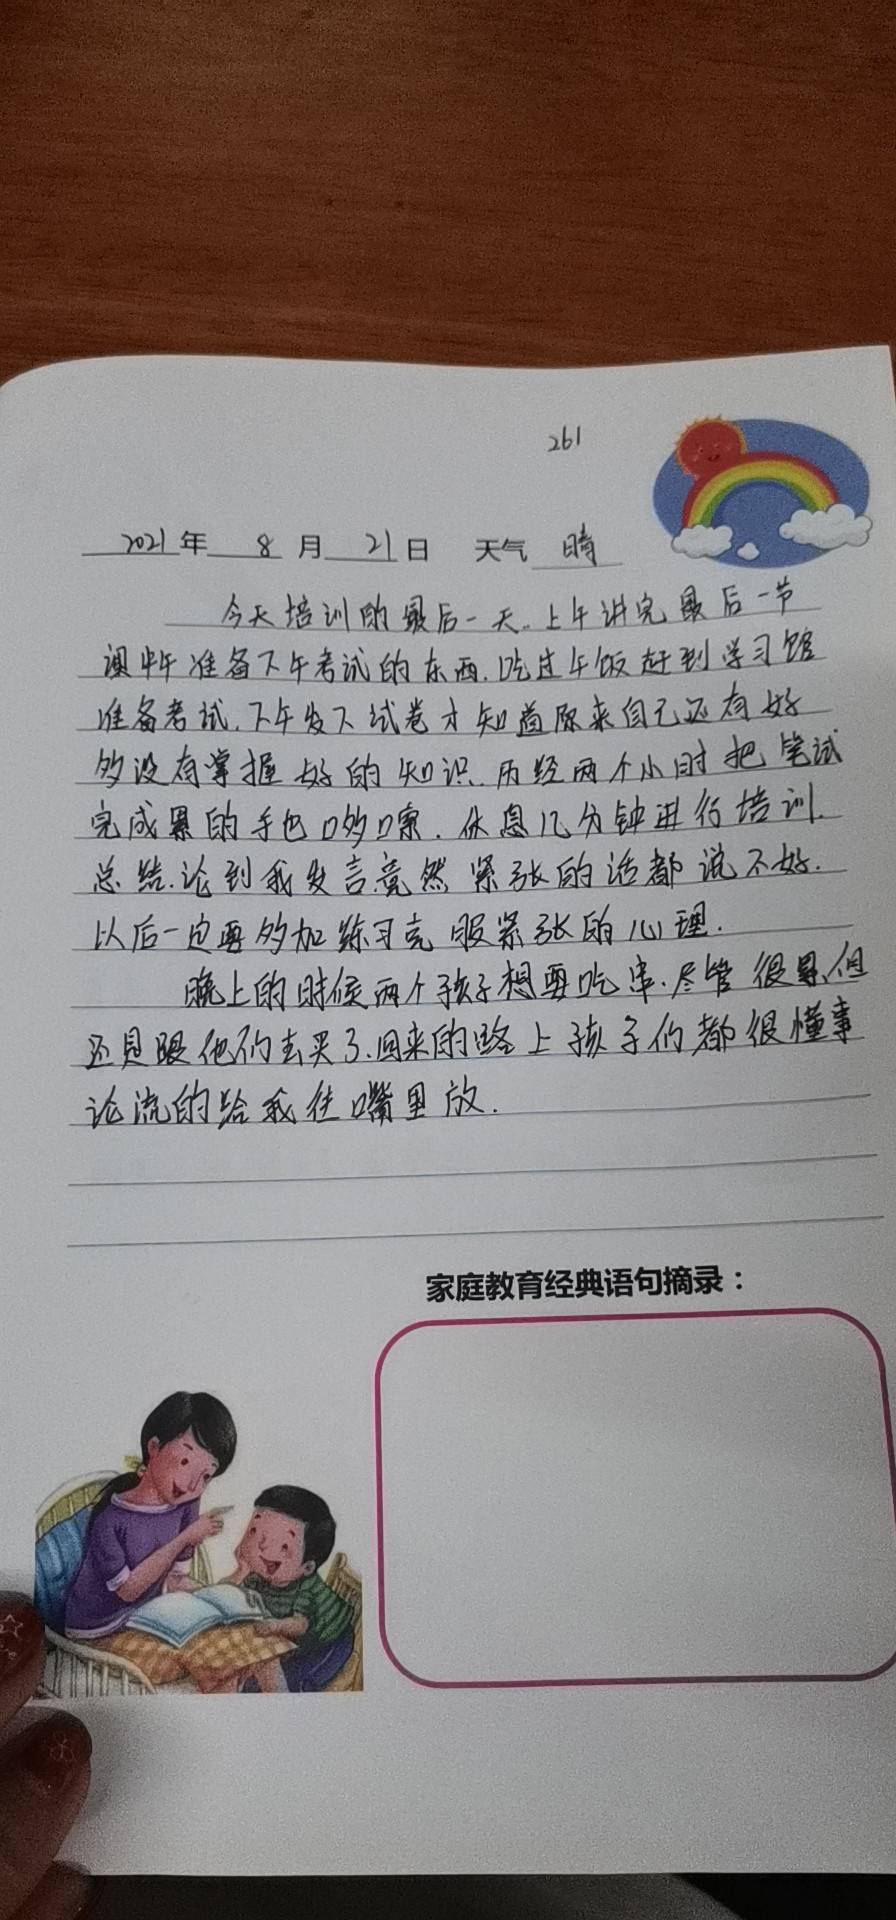 261
2021年 8月21日 天气 晴
今天培训的最后一天.上午讲完最后一节
课中午准备下午考试的东西.吃过午饭赶到学习馆
准备考试.下午发下试卷才知道原来自己还有好
多没有掌握好的知识.历经两个小时把笔试
完成累的手也哆嗦.休息几分钟进行培训.
总结.论到我发言竟然紧张的话都说不好.
以后一定要多加练习克服紧张的心理.
晚上的时候两个孩子想要吃串.尽管很累,但
还是跟他们去买了.回来的路上孩子们都很懂事
论流的给我往嘴里放.
家庭教育经典语句摘录：